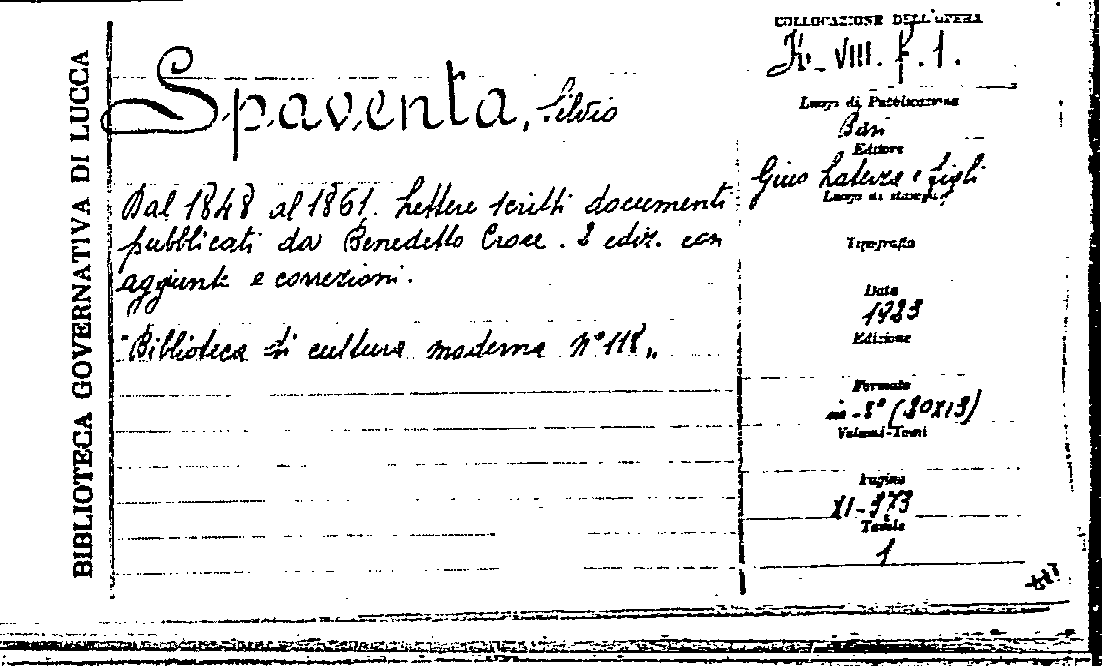 BIBLIOTECA GOVERNATIVA DI LUCCA
Spaventa, Silvio
Dal 1848 al 1861. Lettere scritti documenti
pubblicati da Benedetto Croce. 2 ediz. con
aggiunte e correzioni.
"Biblioteca di cultura moderna N° 118„
COLLOCAZIONE DELL'OPERA
VIII. f. 1.
Luogo di Pubblicazione
Bari
Editore
Gius Laterza e figli
Luogo di stampa
Tipografia
Data
1923
Edizione
Formato
in-8° (20X13)
Volumi-Tomi
Pagine
XI-373
Tavole
1